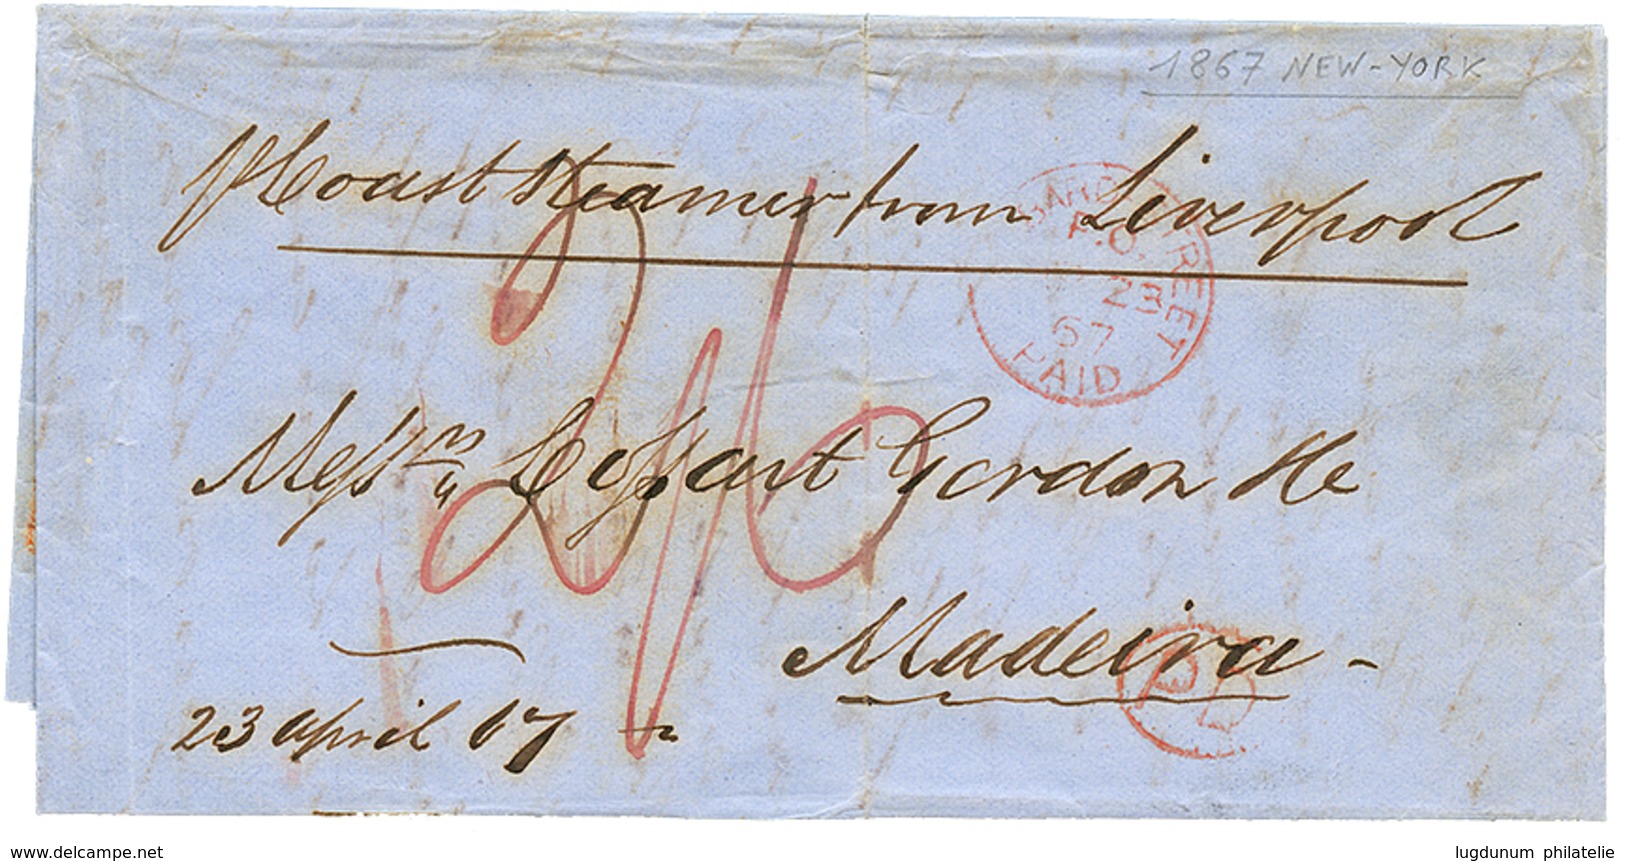 1867 NEW-YORK
p Coast Steamer from Liverpool
BARGE STREET
P.O.
23
67
PAID
2/6
Messrs Cossart Gordon &c
Madeira -
PD
23 april 67
www.delcampe.net
lugdunum philatelie